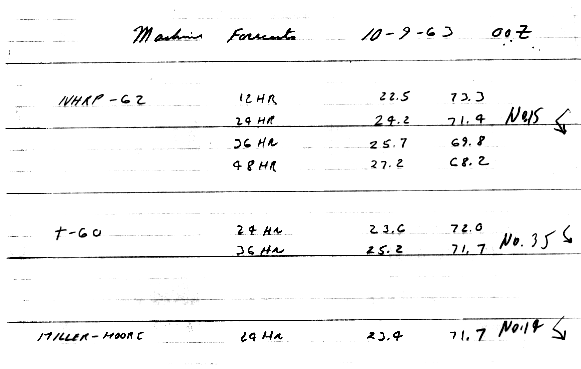 Machine Forecasts 10-9-63 00Z
NHRP-62 12 HR 22.5 73.3
24 HR 24.2 71.4 No.15
36 HR 25.7 69.8
48 HR 27.2 68.2
T-60 24 HR 23.6 72.0
36 HR 25.2 71.7 No. 35
MILLER-MOORE 24 HR 23.4 71.7 No.14